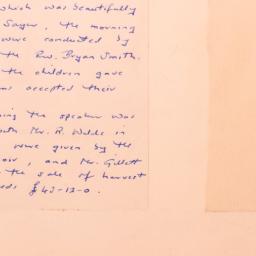 which was beautifully
Sayer, the morning
were conducted by
the Rev. Bryan Smith.
the children gave
accepted their
the speaker was
Mr. R. Walde in
were given by the
, and Mr. Gillett
the sale of harvest
£43-13-0.